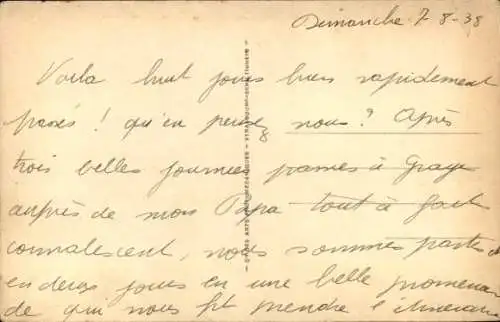 Dimanche 7-8-38
Voila huit jours bien rapidement
passés ! qu'en pensez nous ? Après
trois belles journées passées à Graye
auprès de mon Papa tout à fait
convalescent, nous sommes partis
en deux jours en une belle promenade
de qui nous fit prendre l'itinéraire